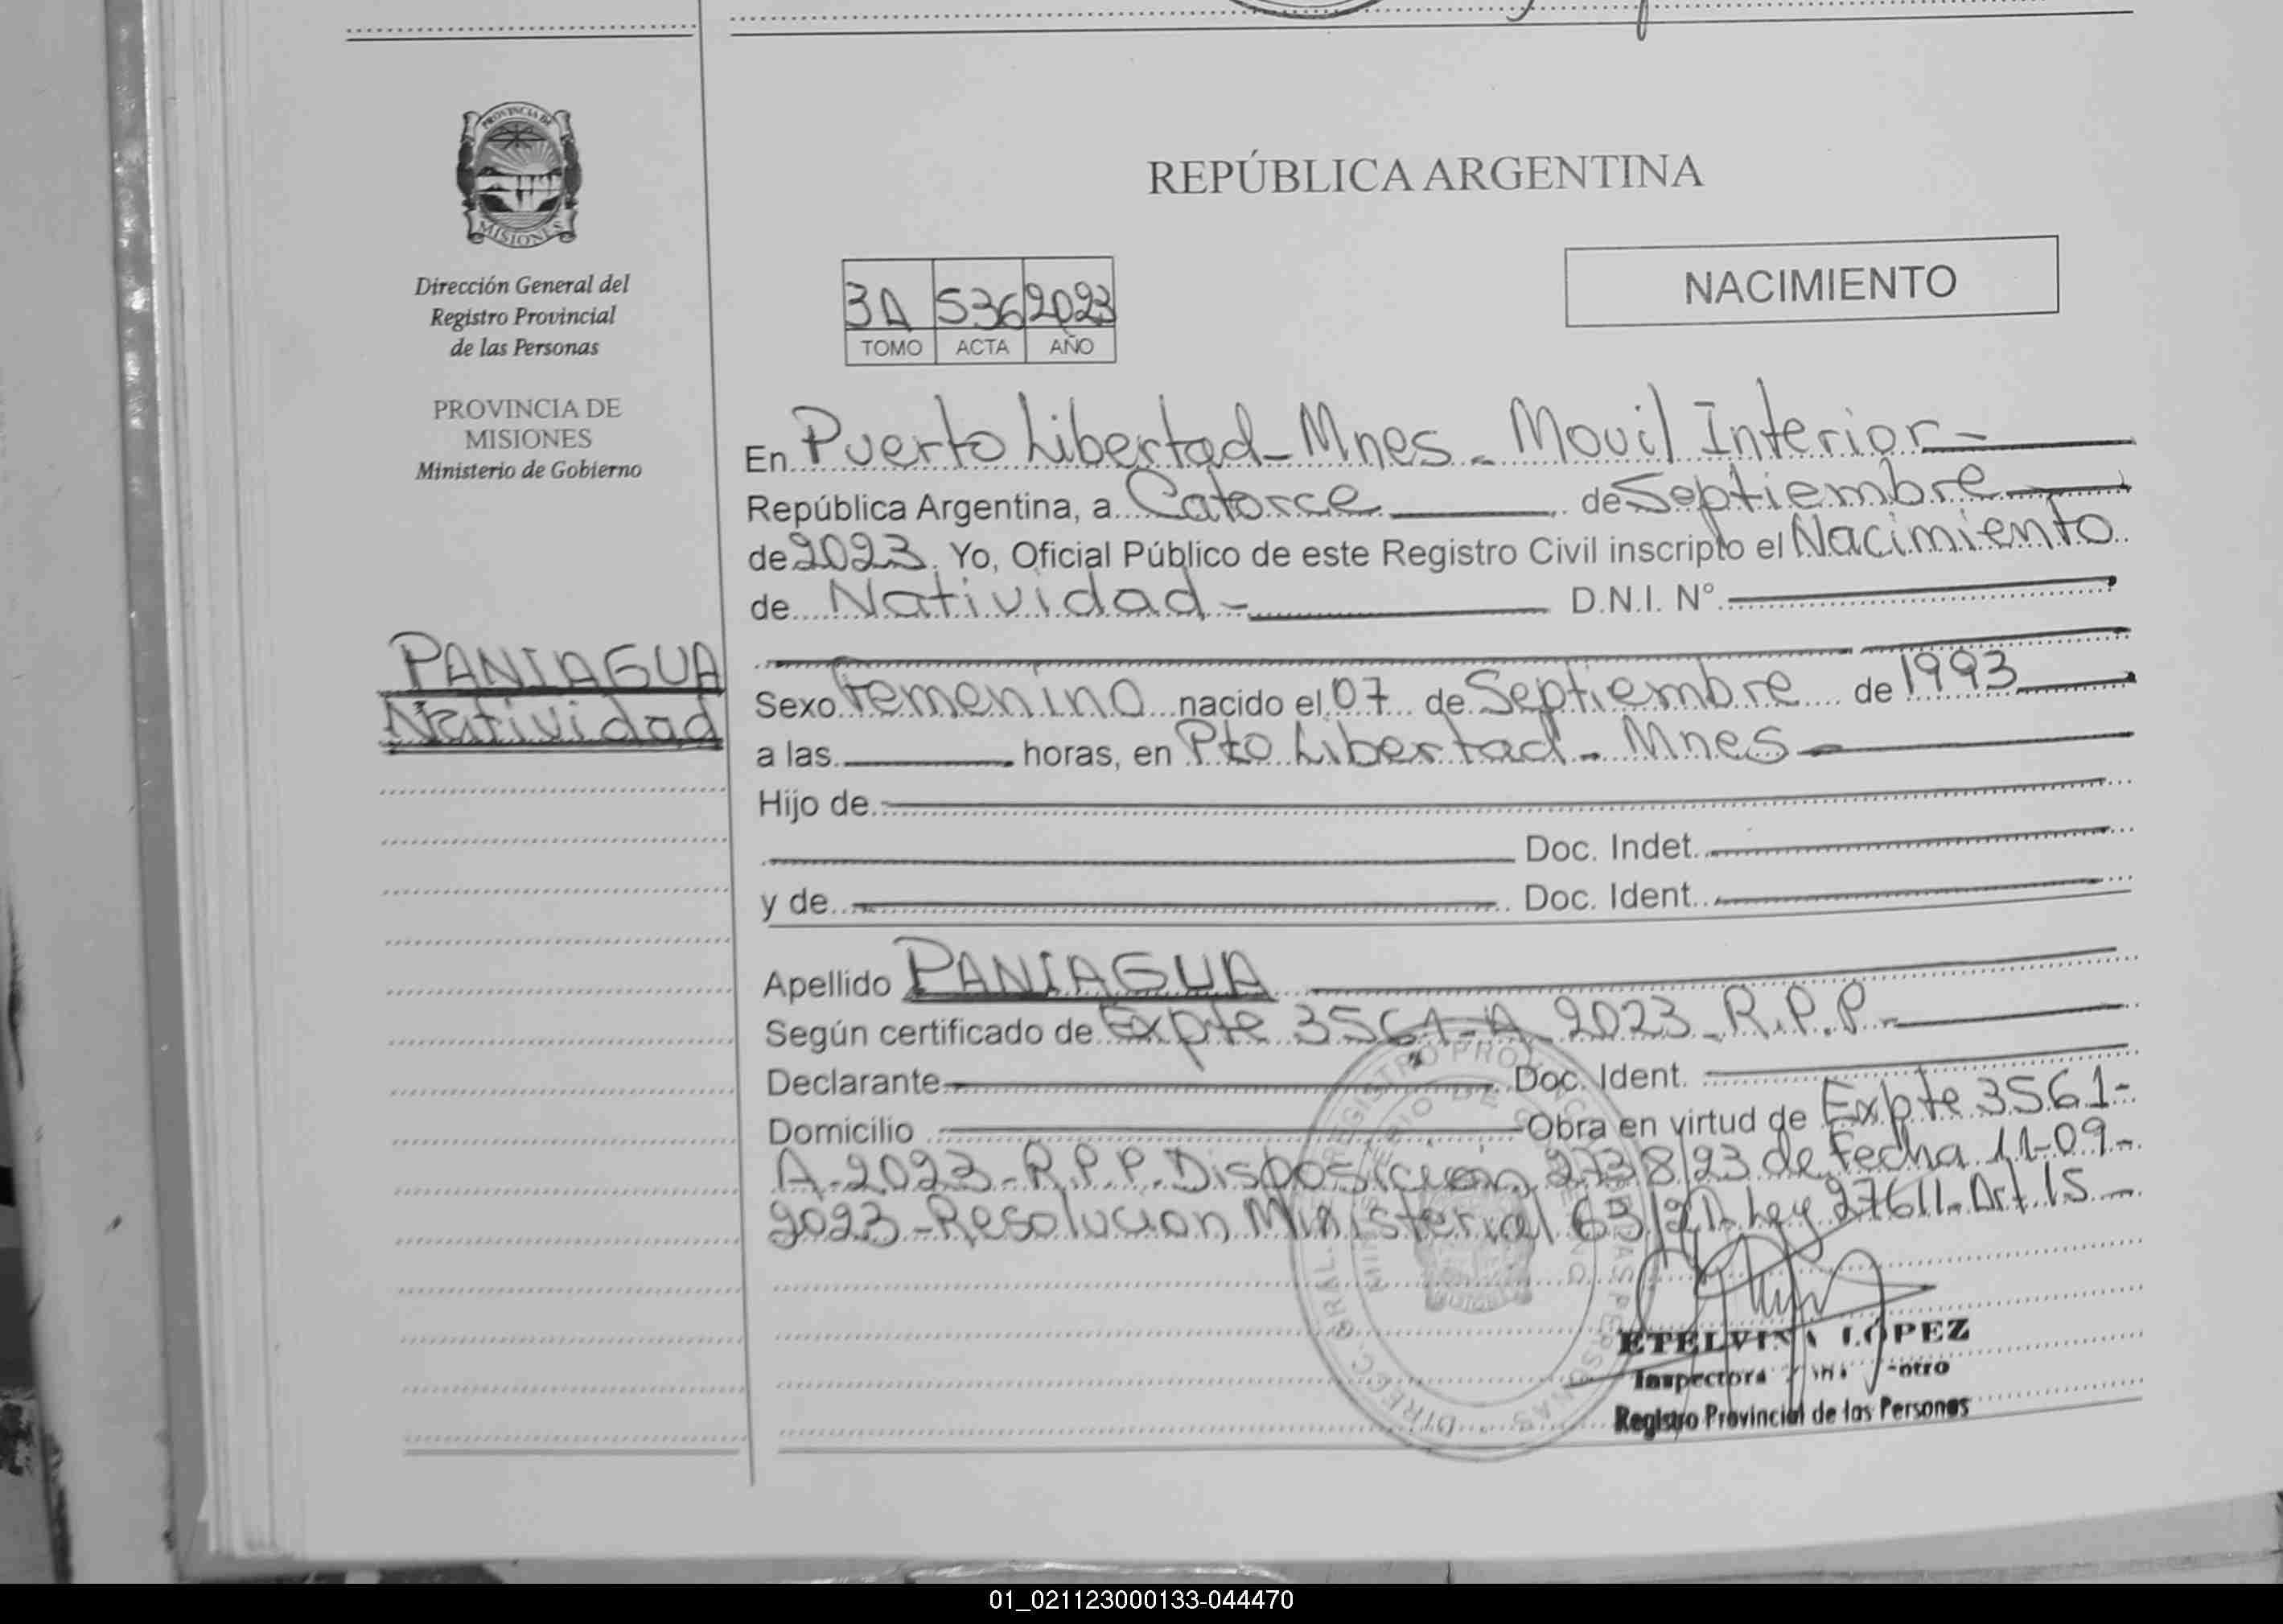 PROVINCIA DE
MISIONES
Dirección General del
Registro Provincial
de las Personas
PROVINCIA DE
MISIONES
Ministerio de Gobierno
PANIAGUA
Natividad
REPÚBLICA ARGENTINA
NACIMIENTO
3A 536 2023
TOMO ACTA AÑO
En Puerto Libertad - Mnes - Movil Interior -
República Argentina, a Catorce de Septiembre
de 2023. Yo, Oficial Público de este Registro Civil inscripto el Nacimiento
de Natividad - D.N.I. N°
Sexo Femenino nacido el 07 de Septiembre de 1993
a las horas, en Pto Libertad - Mnes -
Hijo de
Doc. Indet.
y de Doc. Ident.
Apellido PANIAGUA
Según certificado de Expte 3561-A 2023 - R.P.P -
Declarante Doc. Ident.
Domicilio Obra en virtud de Expte 3561-
A-2023-R.P.P. Disposición 2738/23 de Fecha 11-09-
2023 - Resolucion Ministerial 63/21 Ley 27611. Art 15 -
ETELVINA LÓPEZ
Inspectora
Registro Provincial de las Personas
01_021123000133-044470